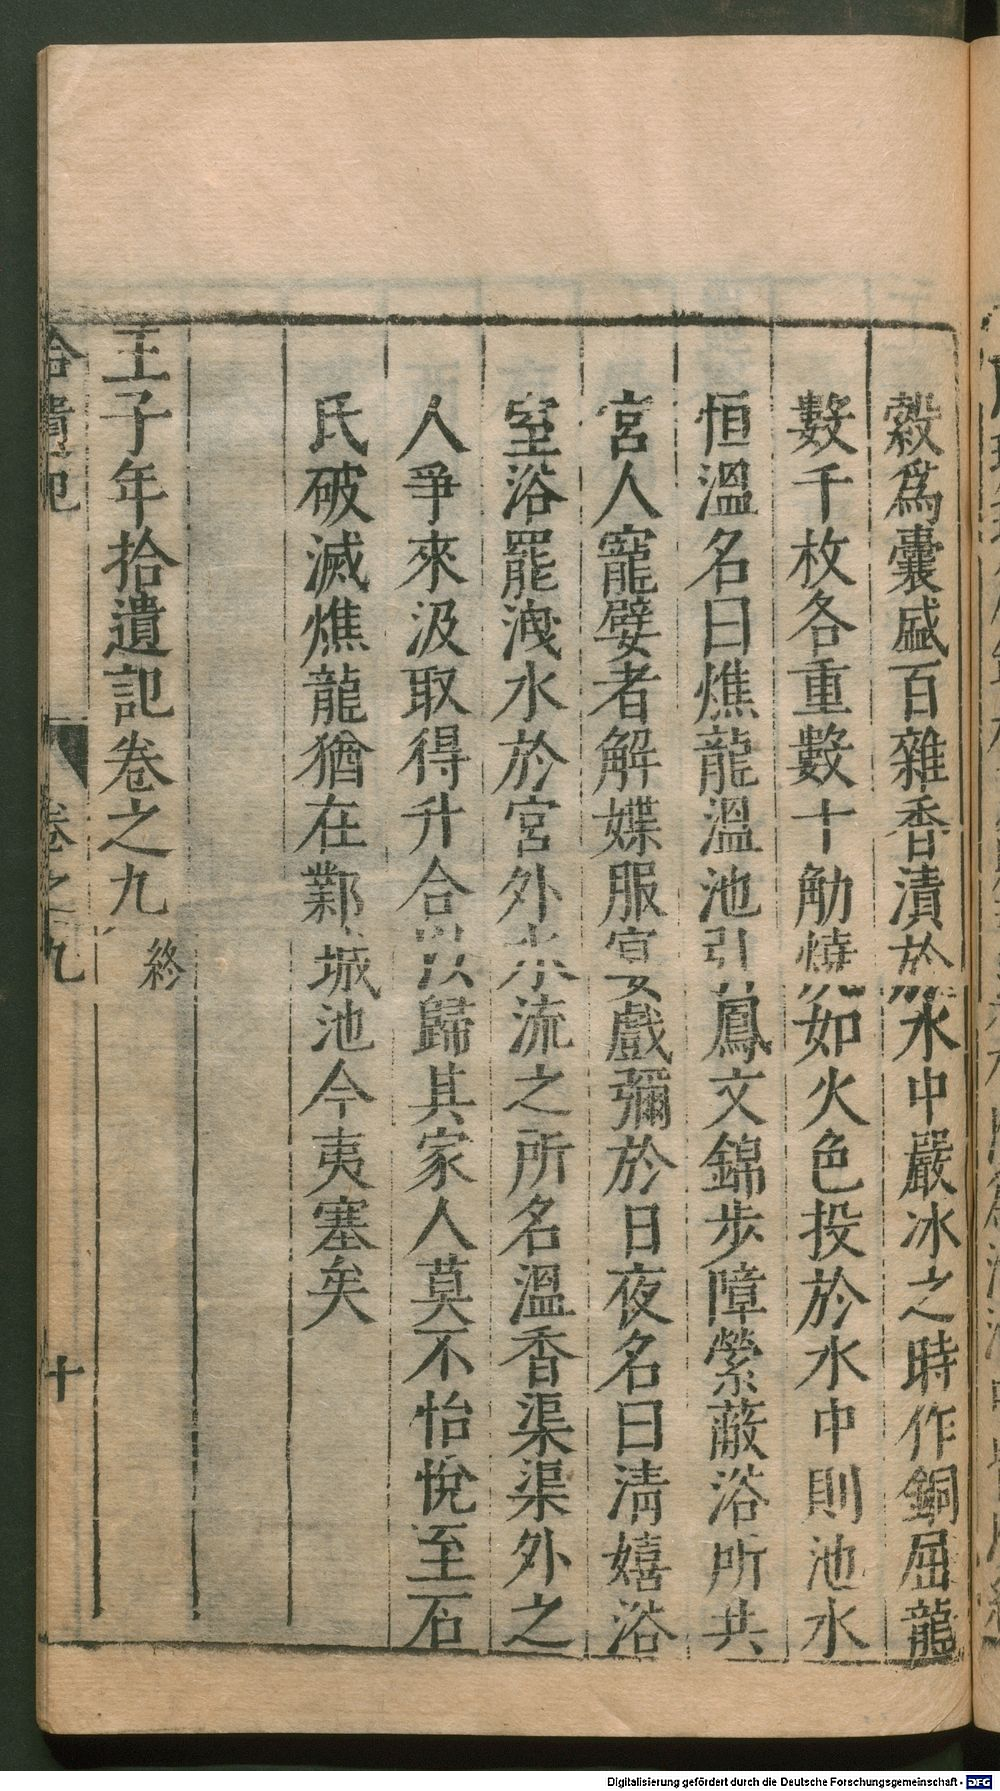 縠爲囊盛百雜香漬於水中嚴冰之時作銅屈龍
數千枚各重數十觔燒如火色投於水中則池水
恒溫名曰燋龍溫池引鳳文錦步障縈蔽浴所共
宮人寵嬖者解媟服宴戲彌於日夜名曰清嬉浴
室浴罷洩水於宮外水流之所名溫香渠渠外之
人爭來汲取得升合以歸其家人莫不怡悅至石
氏破滅燋龍猶在鄴城池今夷塞矣
王子年拾遺記卷之九 終
拾遺記 卷之九 十
Digitalisierung gefördert durch die Deutsche Forschungsgemeinschaft - DFG